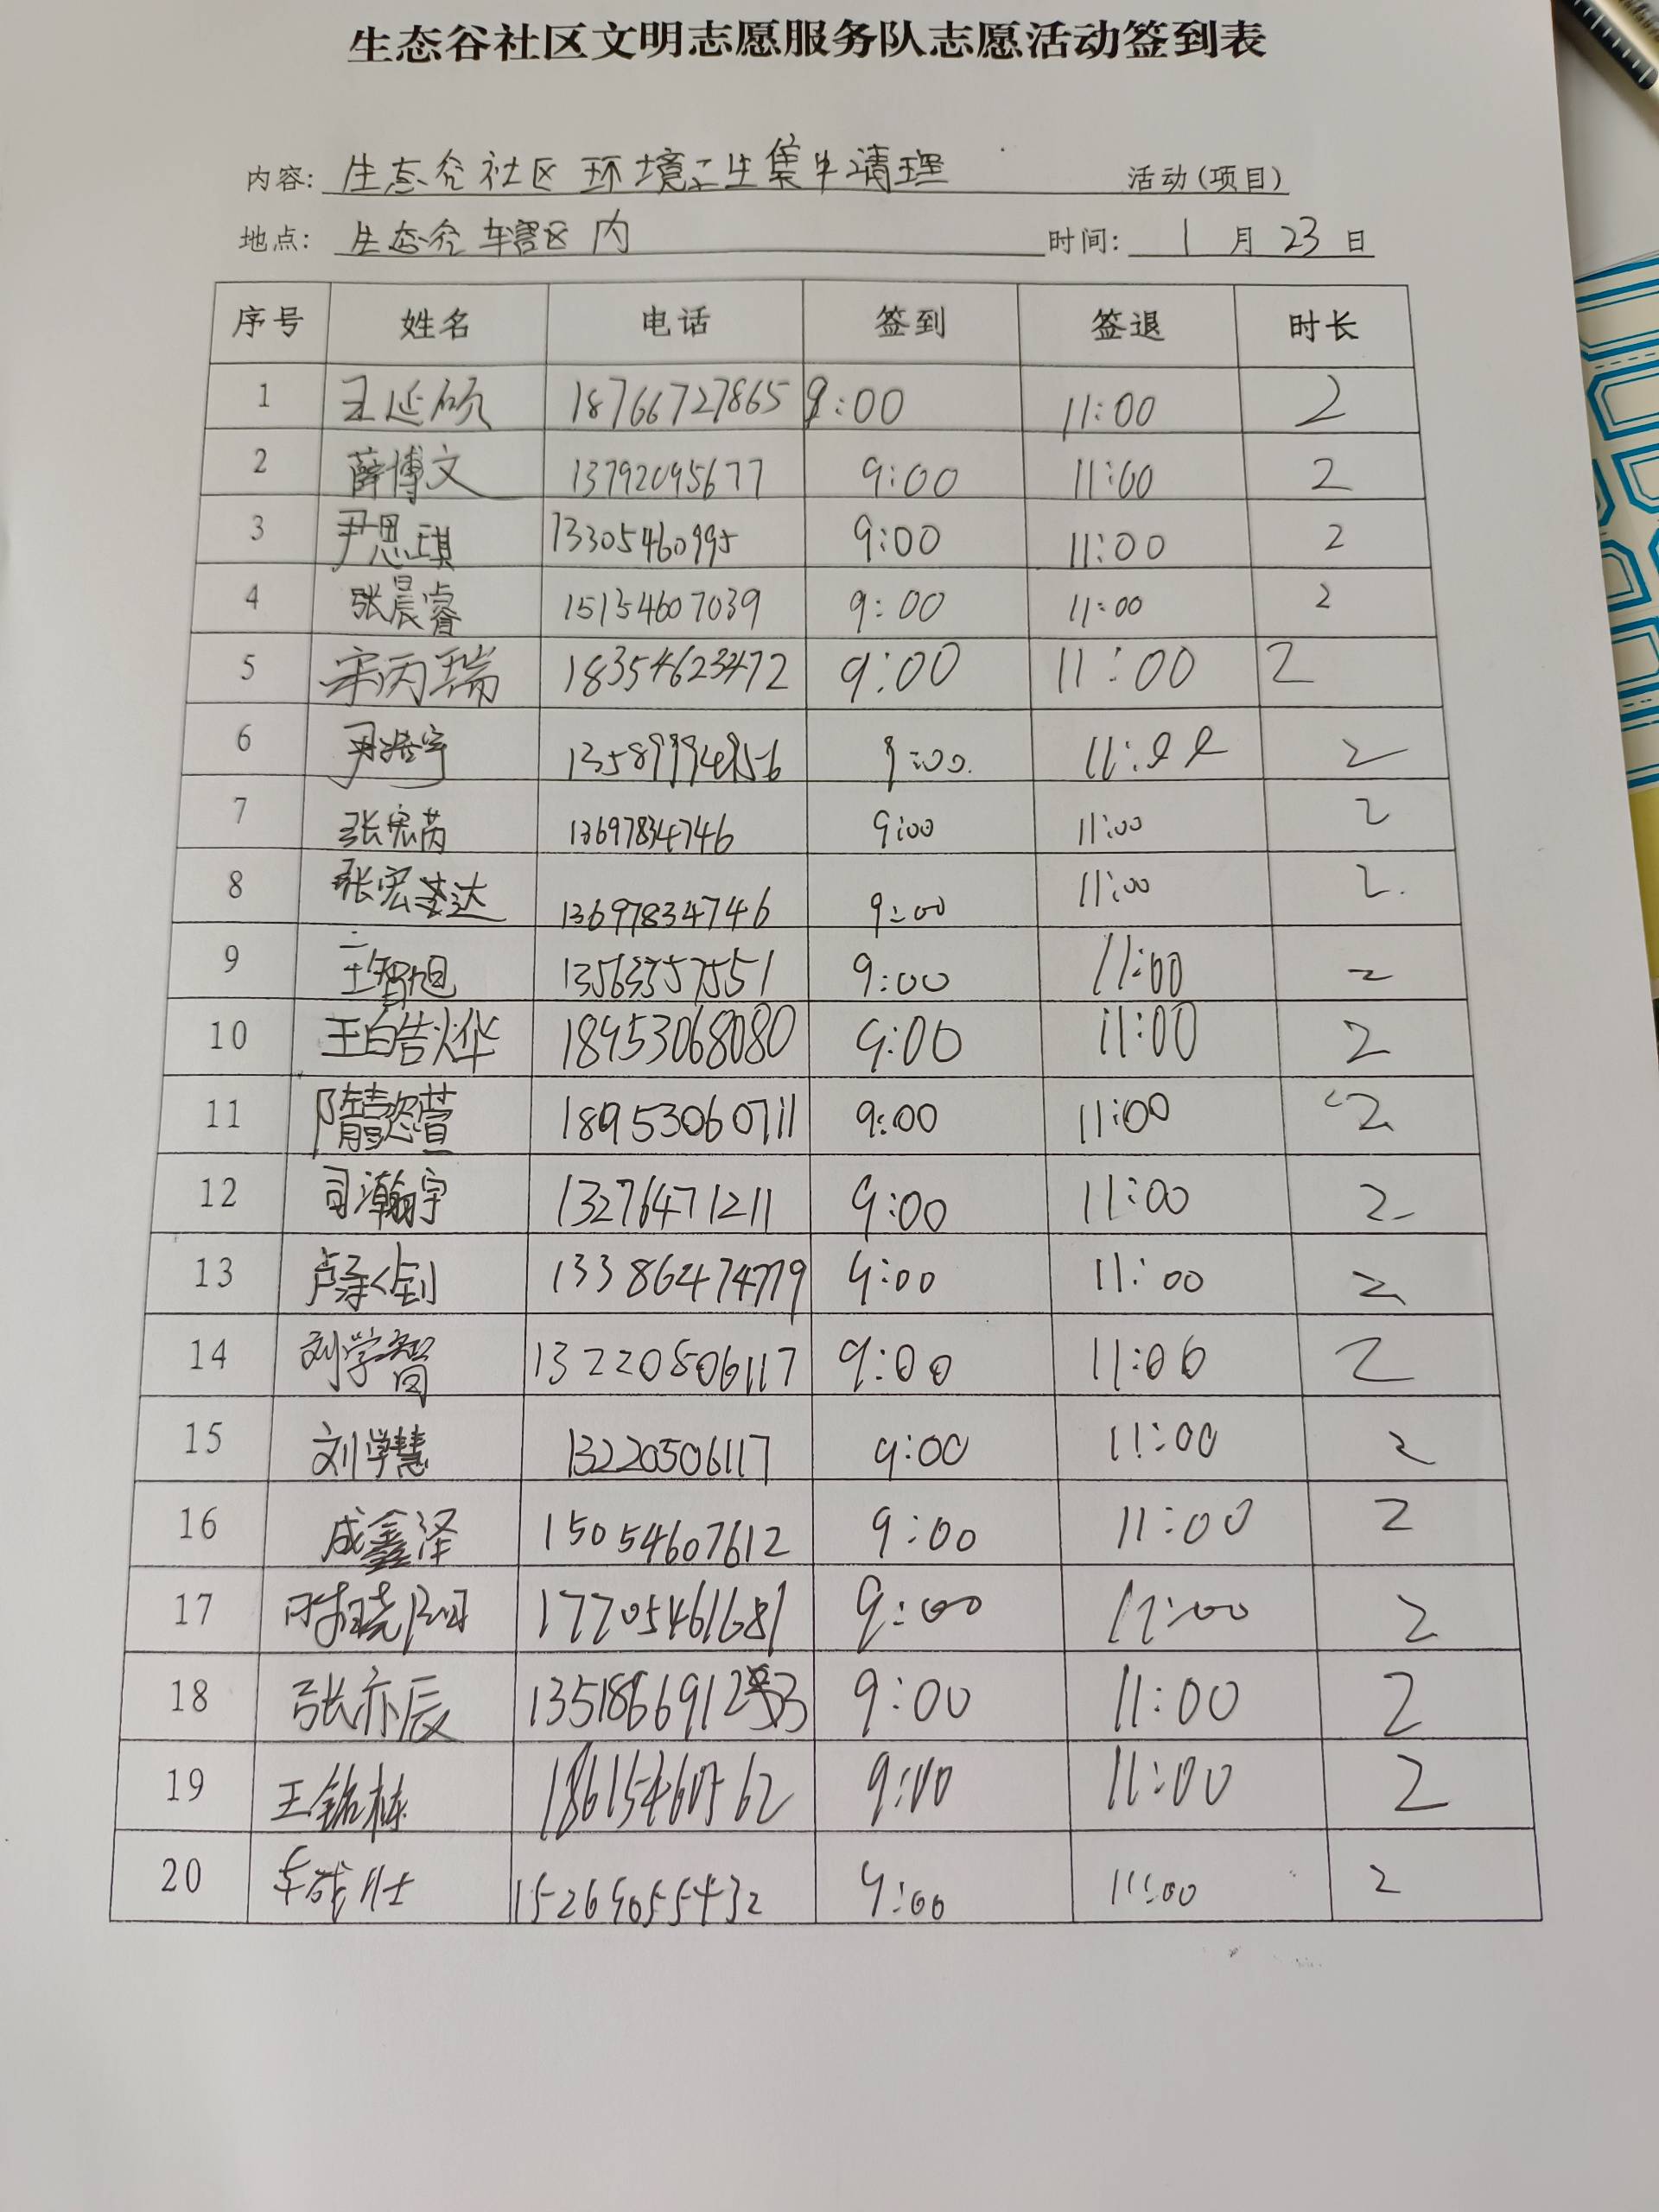 生态谷社区文明志愿服务队志愿活动签到表
内容: 生态谷社区环境卫生集中清理 活动(项目)
地点: 生态谷辖区内 时间: 1月23日
序号 姓名 电话 签到 签退 时长
1 王延硕 18766727865 9:00 11:00 2
2 薛博文 13792095677 9:00 11:00 2
3 尹思琪 13305460995 9:00 11:00 2
4 张晨睿 15154607039 9:00 11:00 2
5 宋丙瑞 18354623472 9:00 11:00 2
6 9:00 11:00 2
7 张宏芮 13697834746 9:00 11:00 2
8 张宏 13697834746 9:00 11:00 2
9 王智旭 9:00 11:00 2
10 王皓烨 18953068080 9:00 11:00 2
11 隋懿萱 18953060711 9:00 11:00 2
12 司瀚宇 13276471211 9:00 11:00 2
13 9:00 11:00 2
14 刘学智 13220506117 9:00 11:00 2
15 刘学慧 13220506117 9:00 11:00 2
16 成鑫泽 15054607612 9:00 11:00 2
17 17705461681 9:00 11:00 2
18 张亦辰 9:00 11:00 2
19 王铭栋 18615460562 9:00 11:00 2
20 15269055432 9:00 11:00 2